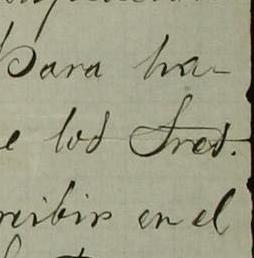 para ha-
e los Sres.
recibir en el